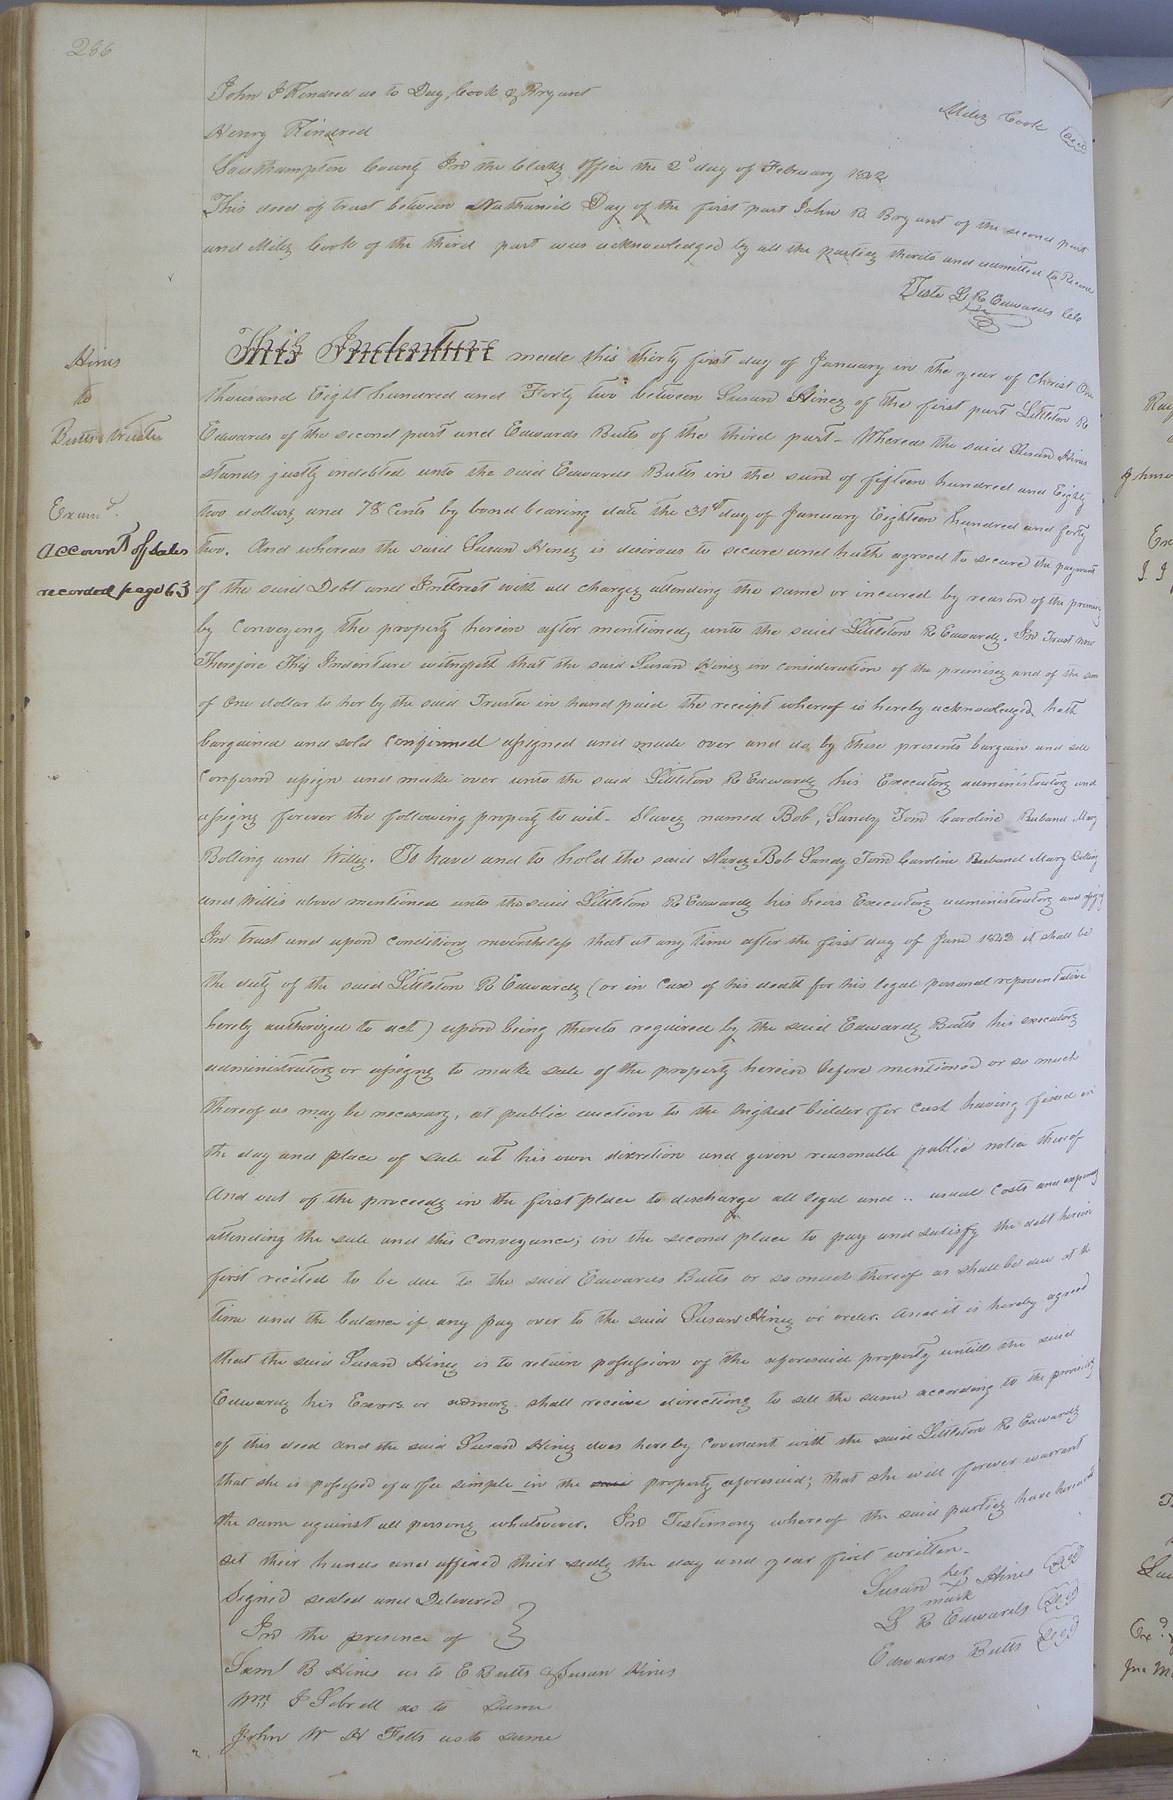 266
John J Kindred as to Day, Cook & Bryant
Miles Cook (Seal)
Henry Kindred
Southampton County In the Clerks Office the 2d day of February 1842
This deed of trust between Nathaniel Day of the first part John R Bryant of the second part
and Miles Cook of the third part was acknowledged by all the parties thereto and admitted to Record
Teste L R Edwards Clk
Hines
to
Butts trustee
Examd.
Account of Sales
recorded page 63
This Indenture made this thirty first day of January in the year of Christ One
thousand Eight hundred and Forty two between Susan Hines of the first part Littleton R
Edwards of the second part and Edwards Butts of the third part - Whereas the said Susan Hines
stands justly indebted unto the said Edwards Butts in the sum of fifteen hundred and Eighty
two dollars and 78 Cents by bond bearing date the 31st day of January Eighteen hundred and forty
two. And whereas the said Susan Hines is desirous to secure and hath agreed to secure the payment
of the said Debt and Interest with all charges attending the same or incured by reason of the premises
by Conveying the property herein after mentioned unto the said Littleton R Edwards. In Trust now
Therefore This Indenture witnesseth that the said Susan Hines in consideration of the premises and of the sum
of One dollar to her by the said Trustee in hand paid the receipt whereof is hereby acknowledged hath
bargained and sold Confirmed assigned and made over and do by these presents bargain and sell
Confirm assign and make over unto the said Littleton R Edwards his Executors administrators and
assigns forever the following property to wit - Slaves named Bob, Sandy Tom Caroline Mary
Bolling and Willis. To have and to hold the said slaves Bob Sandy Tom Caroline Mary Bolling
and Willis above mentioned unto the said Littleton R Edwards his heirs Executors administrators and assigns
In trust and upon conditions nevertheless that at any time after the first day of June 1842 it shall be
the duty of the said Littleton R Edwards (or in Case of his death for his legal personal representative
hereby authorized to act) upon being thereto required by the said Edwards Butts his executors
administrators or assigns to make sale of the property herein before mentioned or so much
thereof as may be necessary, at public auction to the highest bidder for Cash having fixed on
the day and place of sale at his own discretion and given reasonable public notice thereof
And out of the proceeds in the first place to discharge all legal and .. usual Costs and expenses
attending the sale and this Conveyance; in the second place to pay and satisfy the debt herein
first recited to be due to the said Edwards Butts or so much thereof as shall be due at the
time and the balance if any pay over to the said Susan Hines or order. And it is hereby agreed
that the said Susan Hines is to retain possession of the aforesaid property untill the said
Edwards his Exors. or admors. shall receive directions to sell the same according to the provisions
of this deed And the said Susan Hines does hereby Covenant with the said Littleton R Edwards
that she is possessed of a fee simple in the said property aforesaid; that she will forever warrant
the same against all persons whatsoever. In Testimony whereof the said parties have hereunto
set their hands and affixed their seals the day and year first written -
Signed sealed and Delivered
In the presence of
Susan her mark Hines (Seal)
L R Edwards (Seal)
Edwards Butts (Seal)
Saml B Hines as to E Butts & Susan Hines
Wm. J Sebrell as to same
John W H Felts as to same